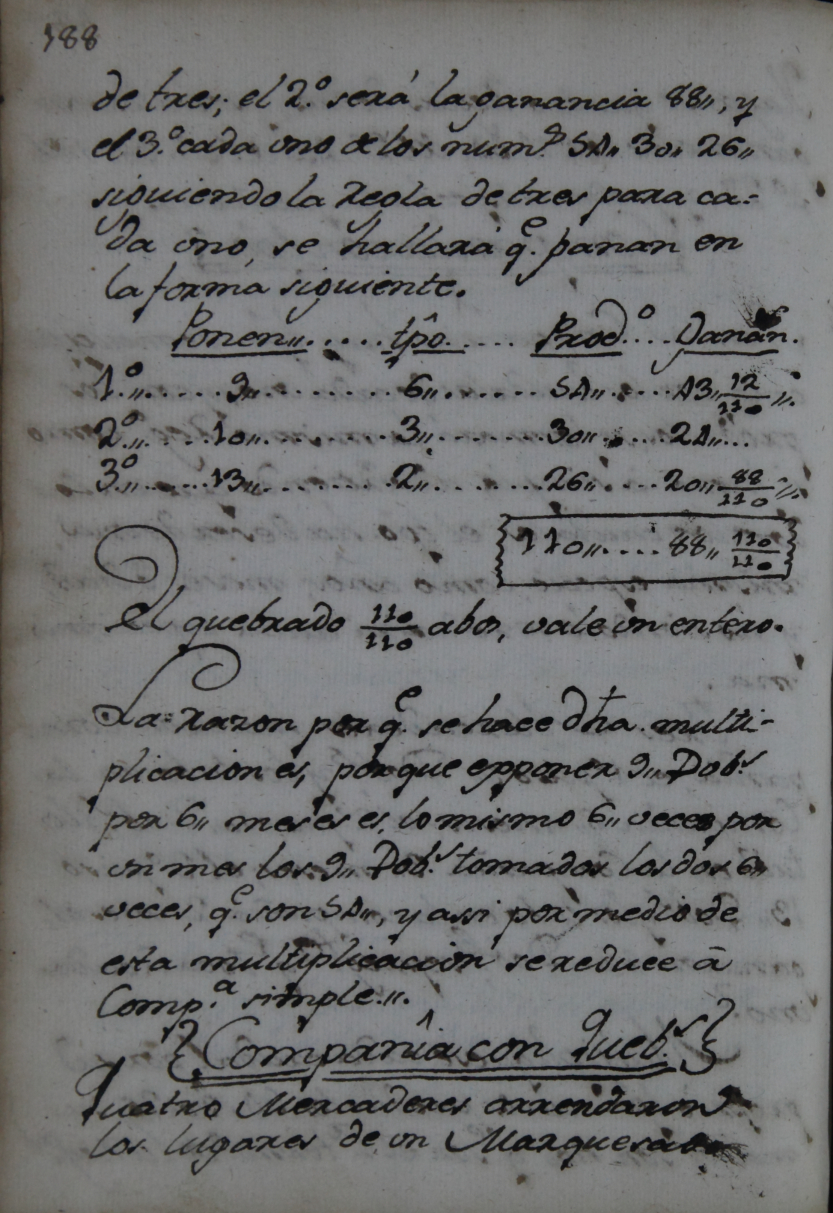 188
de tres; el 2.º será la ganancia 88,, y
el 3.º cada uno de los num.s 54,, 30,, 26,,
siguiendo la Regla de tres para ca=
da uno, se hallará q.e ganan en
la forma siguiente.
Ponen,,..... tpô..... Prod.º.... Ganan.
1.º,,..... 9,,......... 6,,....... 54,,..... 43,, 12/110 ,,.
2.º,,..... 10,,........ 3,,....... 30,,..... 24,,...
3.º,,..... 13,,........ 2,,....... 26,,..... 20,, 88/110 ,,.
110,,.... 88,, 110/110
El quebrado 110/110 abos, vale un entero.
La razon por q.e se hace dha. multi-
plicacion es, porque exponer 9,, Dob.s
por 6,, meses es, lo mismo 6,, veces por
un mes los 9,, Dob.s tomados los dos 6,,
veces, q.e son 54,, y assi por medio de
esta multiplicacion se reduce â
Comp.a simple.,,.
{Compañia con Queb.s}
Quatro Mercaderes arrendaron
los lugares de un Marquesado